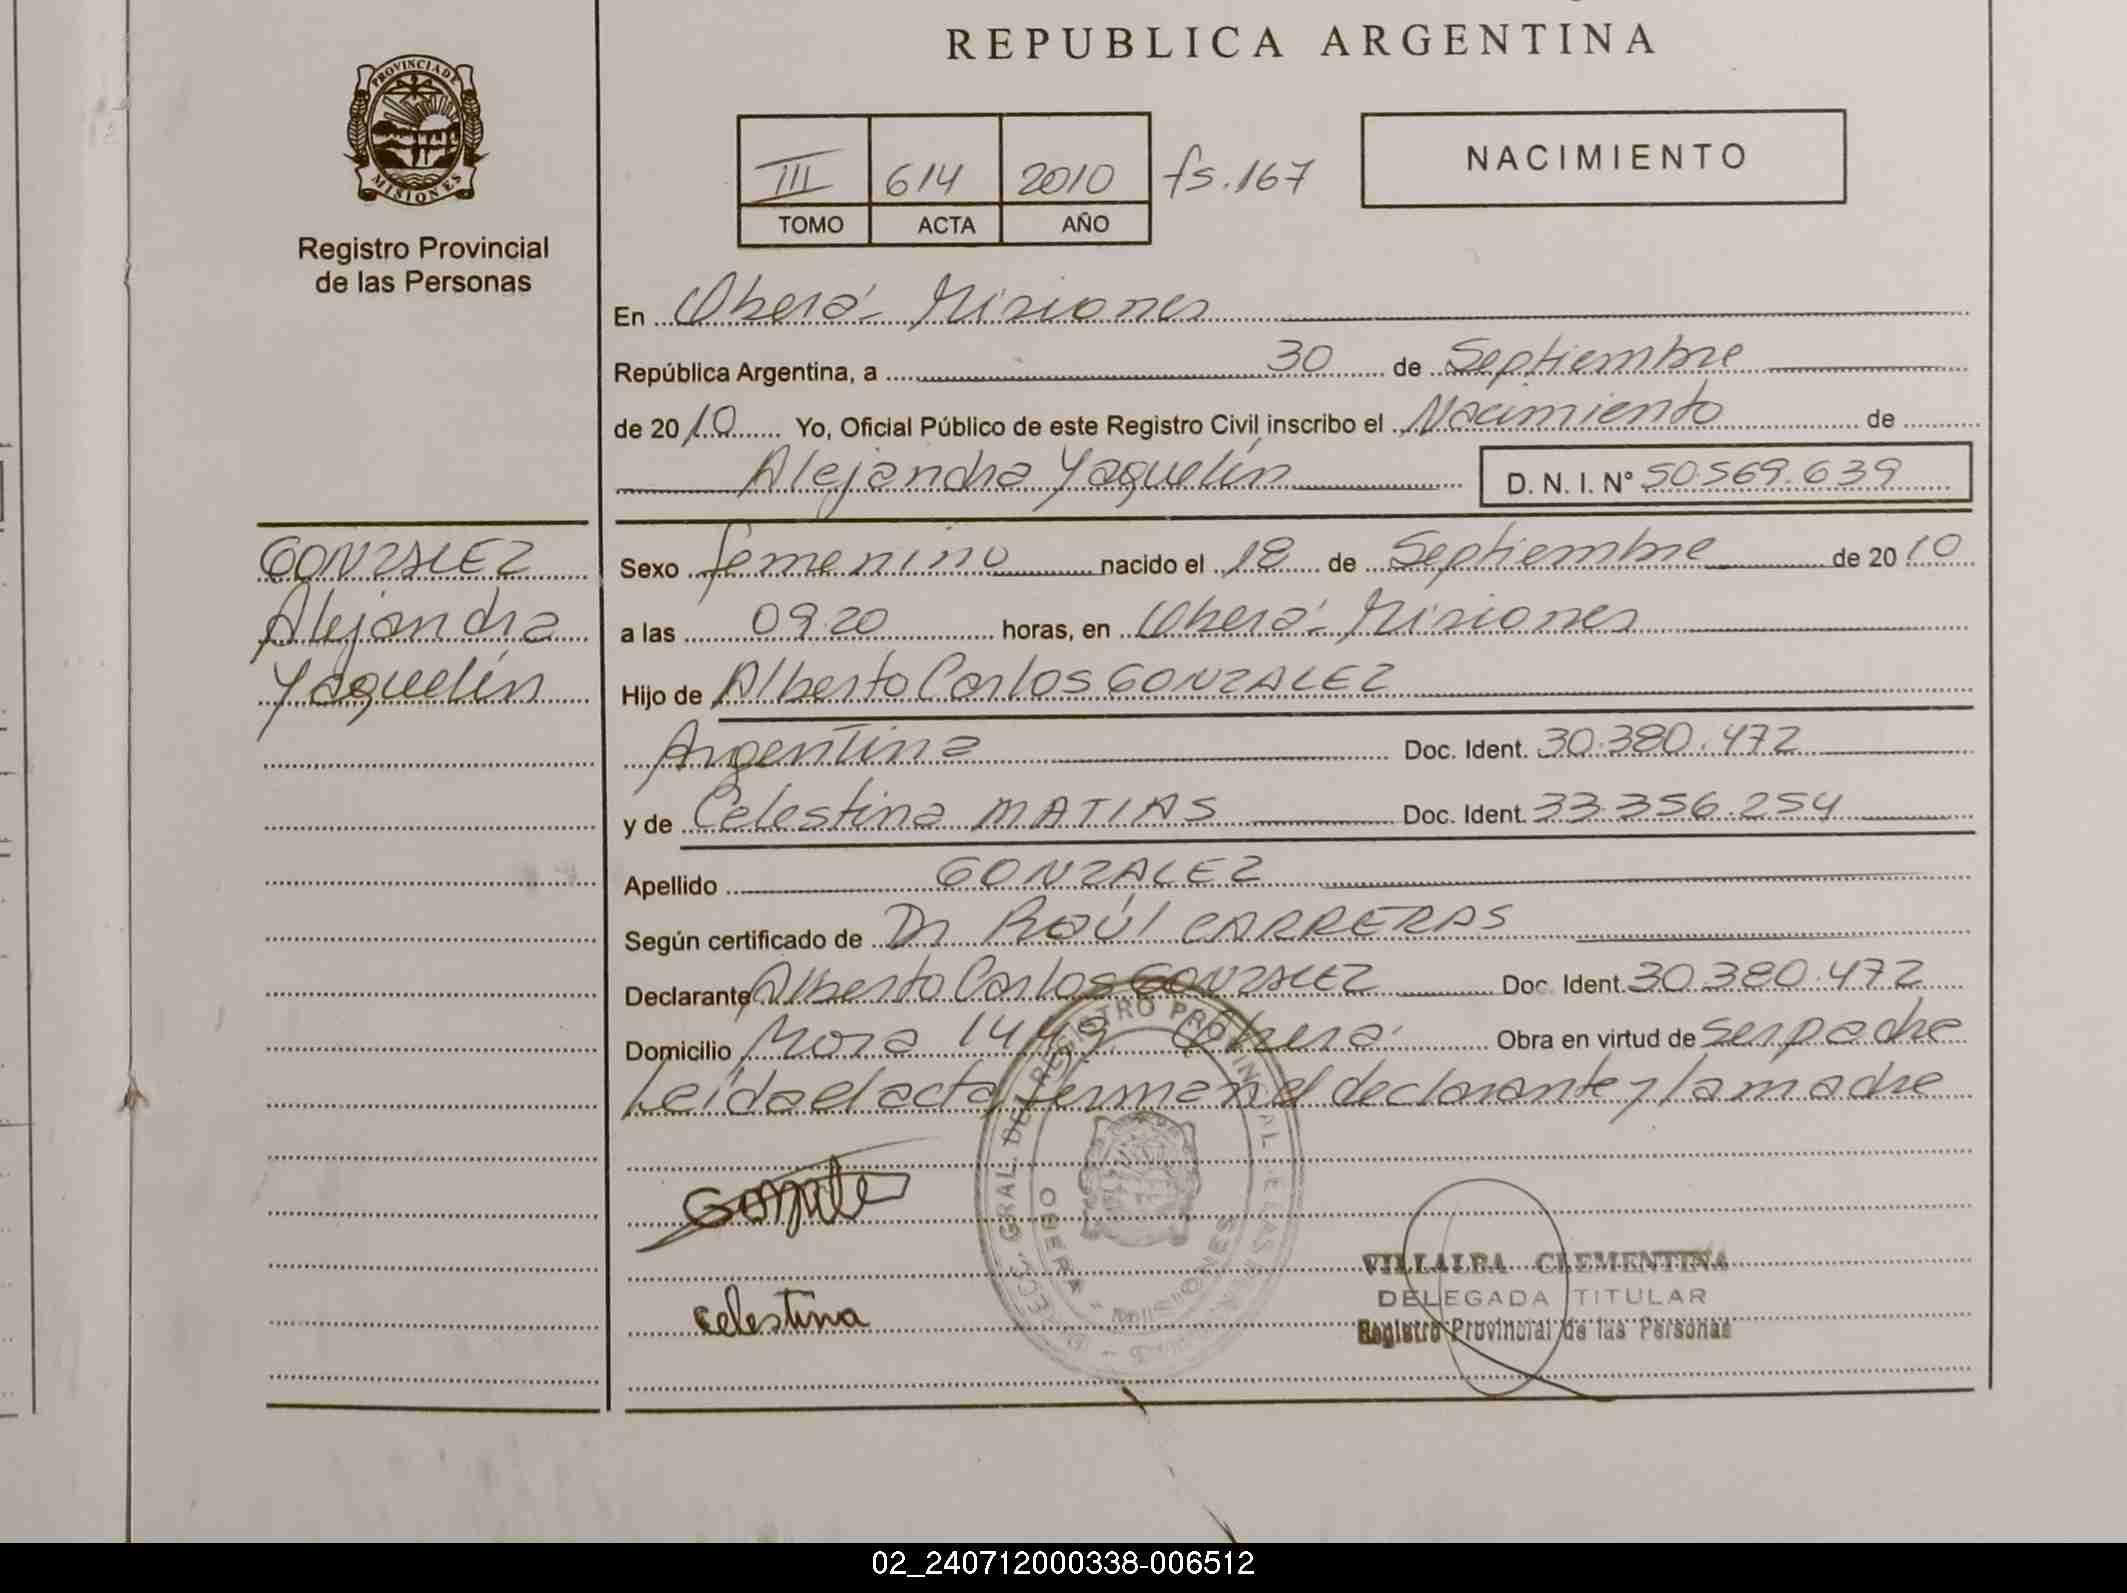 REPUBLICA ARGENTINA
PROVINCIA DE
MISIONES
Registro Provincial
de las Personas
III 614 2010 fs. 167
TOMO ACTA AÑO
NACIMIENTO
En Oberá - Misiones
República Argentina, a 30 de Septiembre
de 20 10 Yo, Oficial Público de este Registro Civil inscribo el Nacimiento de
Alejandra Yaquelín D. N. I. Nº 50.569.639
GONZALEZ
Alejandra
Yaquelín
Sexo femenino nacido el 18 de Septiembre de 20 10
a las 09 20 horas, en Oberá - Misiones
Hijo de Alberto Carlos GONZALEZ
Argentina Doc. Ident. 30.380.472
y de Celestina MATIAS Doc. Ident. 33.356.254
Apellido GONZALEZ
Según certificado de Dr Raúl CARRERAS
Declarante Alberto Carlos GONZALEZ Doc. Ident. 30.380.472
Domicilio Mora 1449 Oberá Obra en virtud de ser padre
Leída el acta, firman el declarante y la madre
GRAL. DEL REGISTRO PROVINCIAL
OBERA
MISIONES
Gonzalez
celestina
VILLALBA CLEMENTINA
DELEGADA TITULAR
Registro Provincial de las Personas
02_240712000338-006512